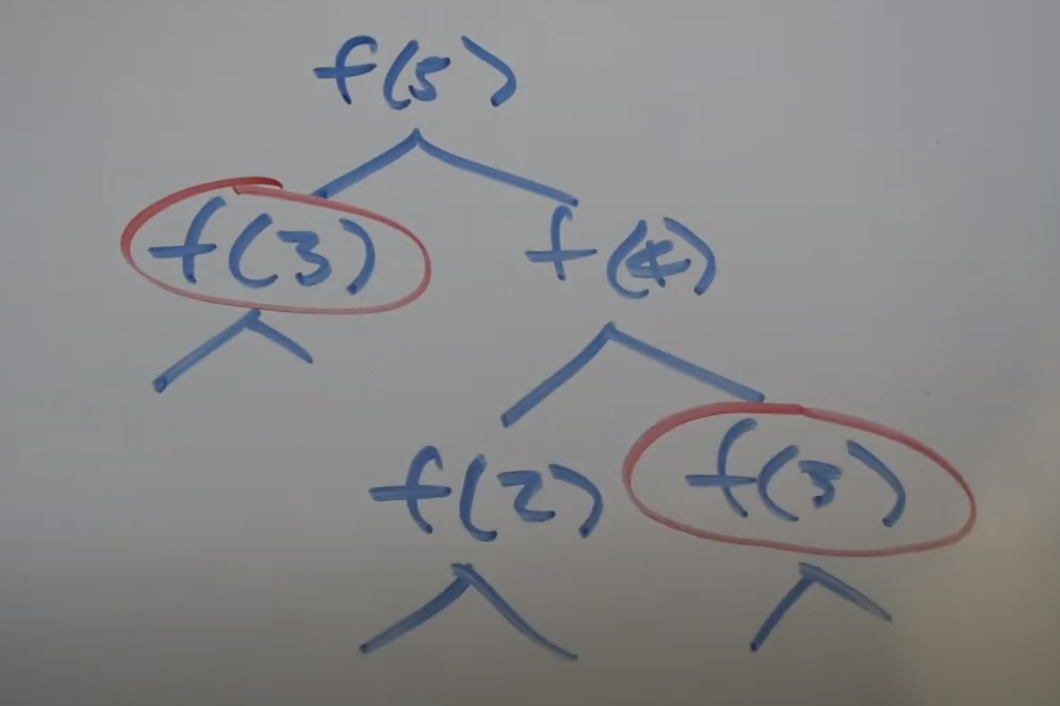 f(5)
f(3) f(4)
f(2) f(3)